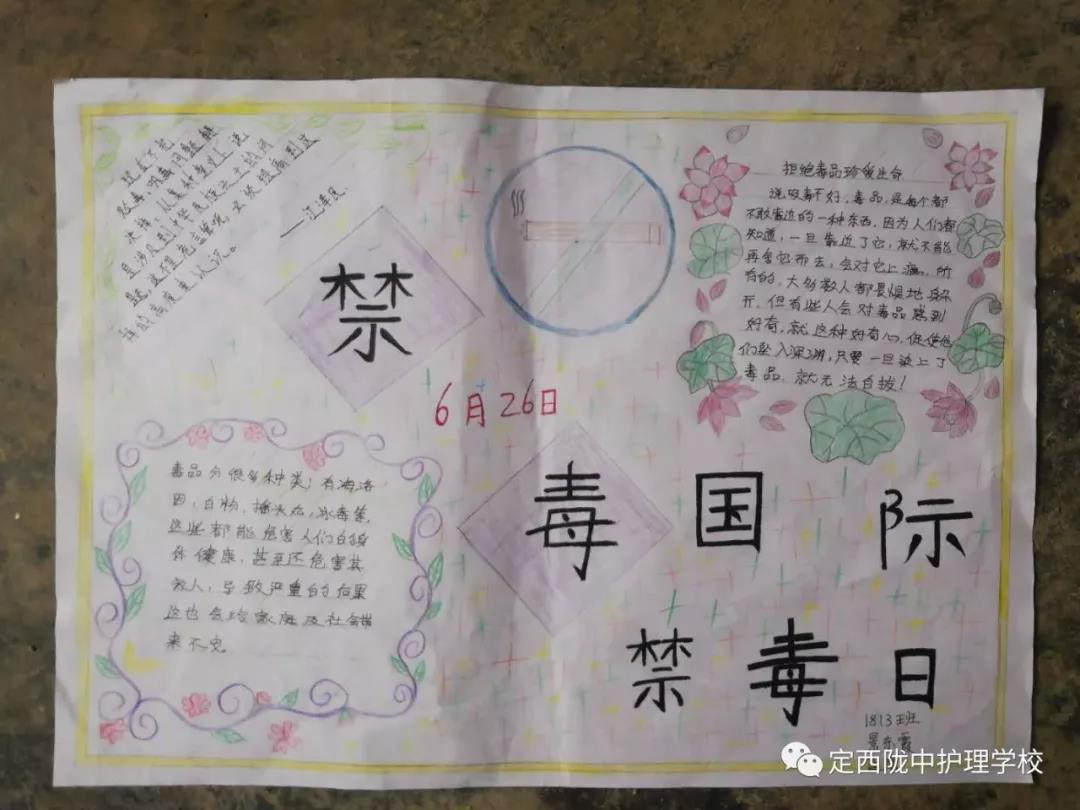 现在不把
贩毒、吸毒问题解
决掉,从某种意义上说
是涉及到中华民族兴亡的问
题,这不是危言耸听,到这
样的高度来认识。
——江泽民
禁
6月26日
拒绝毒品珍爱生命
说吸毒不好,毒品,是每个都
不敢靠近的一种东西,因为人们都
知道,一旦靠近了它,就不能
再舍它而去,会对它上瘾。所
有的,大多数人都畏惧地躲
开。但有些人会对毒品感到
好奇,就这种好奇心,促使他
们坠入深渊,只要一旦染上了
毒品,就无法自拔!
毒品分很多种类;有海洛
因,白粉,摇头丸,冰毒等,
这些都能危害人们的身
体健康,甚至还危害其
他人,导致严重的后果
这也会给家庭及社会带
来不
毒国际
禁毒日
1813班
定西陇中护理学校